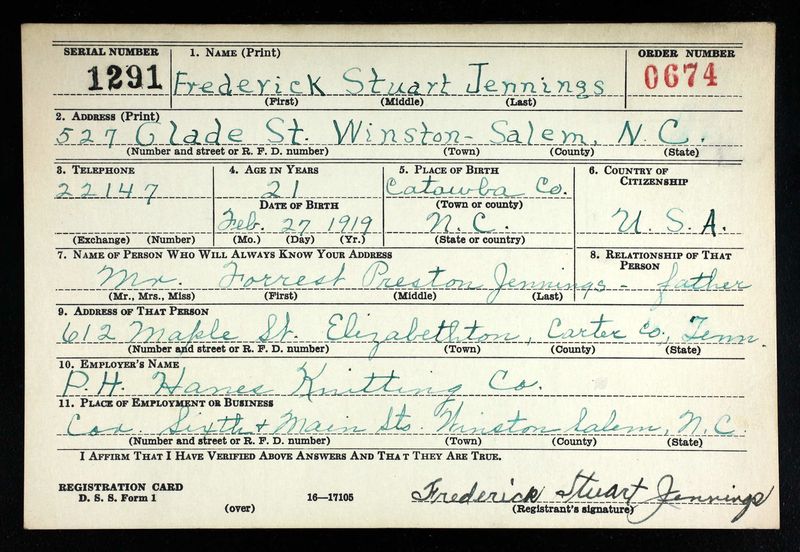 SERIAL NUMBER 1. NAME (Print) ORDER NUMBER
1291 Frederick Stuart Jennings 0674
(First) (Middle) (Last)
2. ADDRESS (Print)
527 Glade St. Winston-Salem, N.C.
(Number and street or R. F. D. number) (Town) (County) (State)
3. TELEPHONE 4. AGE IN YEARS 5. PLACE OF BIRTH 6. COUNTRY OF
CITIZENSHIP
22147 21 Catawba Co.
DATE OF BIRTH (Town or county)
Feb. 27 1919 N.C. U.S.A.
(Exchange) (Number) (Mo.) (Day) (Yr.) (State or country)
7. NAME OF PERSON WHO WILL ALWAYS KNOW YOUR ADDRESS 8. RELATIONSHIP OF THAT
PERSON
Mr. Forrest Preston Jennings - father
(Mr., Mrs., Miss) (First) (Middle) (Last)
9. ADDRESS OF THAT PERSON
612 Maple St. Elizabethton, Carter Co., Tenn.
(Number and street or R. F. D. number) (Town) (County) (State)
10. EMPLOYER'S NAME
P.H. Hanes Knitting Co.
11. PLACE OF EMPLOYMENT OR BUSINESS
Cor. Sixth + Main Sts. Winston Salem, N.C.
(Number and street or R. F. D. number) (Town) (County) (State)
I AFFIRM THAT I HAVE VERIFIED ABOVE ANSWERS AND THAT THEY ARE TRUE.
REGISTRATION CARD
D. S. S. Form 1 16—17105 Frederick Stuart Jennings
(over) (Registrant's signature)